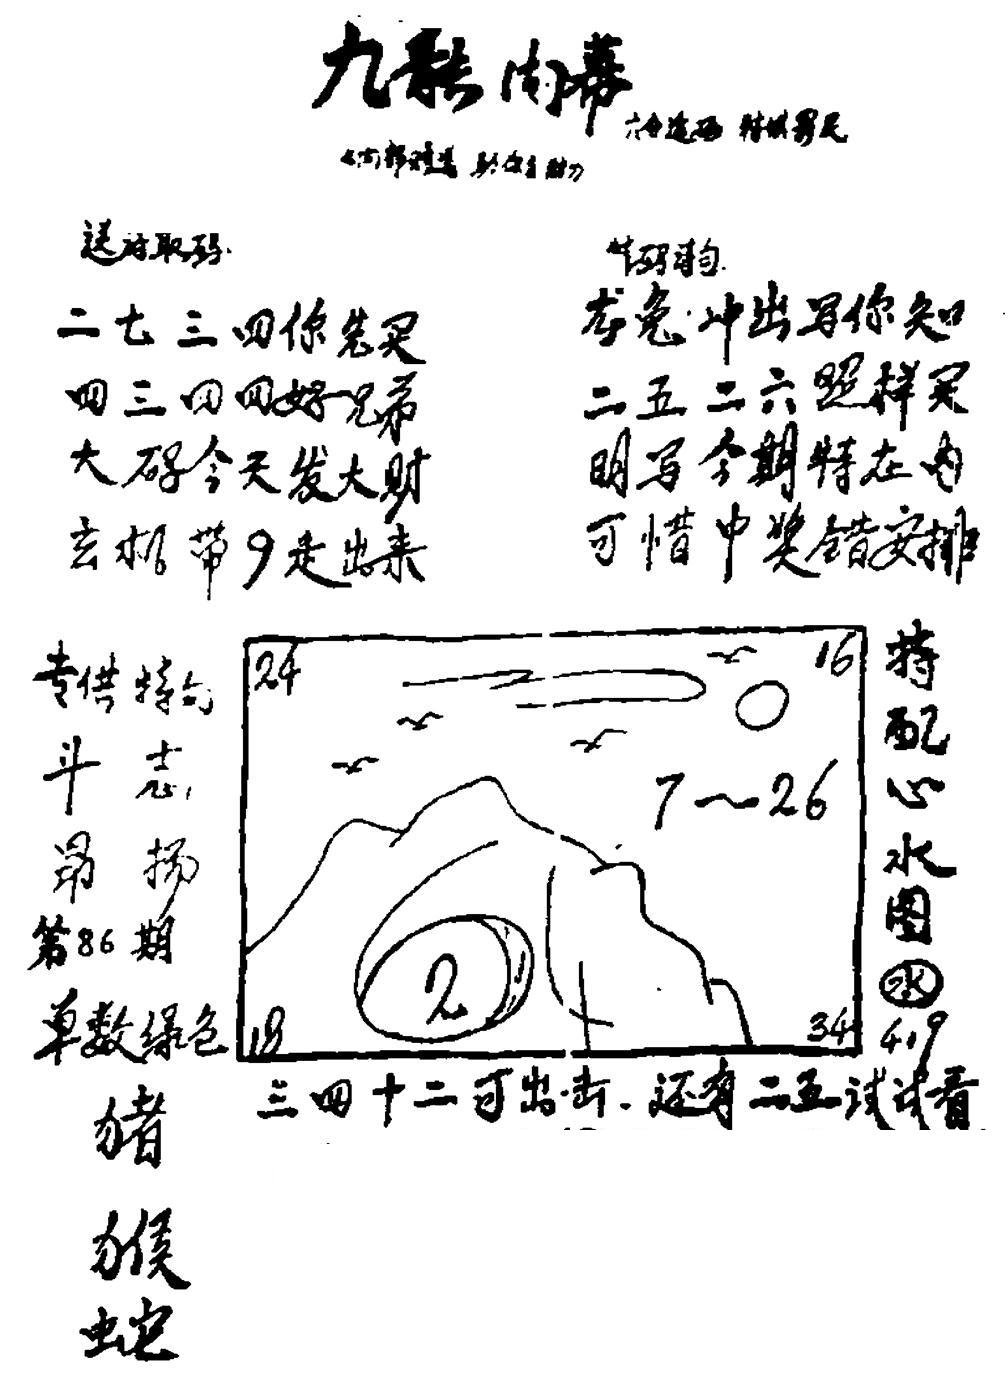 九龙内幕
送诗取码
二七三四你装买
四三四四好兄弟
大码今天发大财
玄机带9走出来
特码诗句
龙兔冲出写你知
二五二六照样买
明写今期特在内
可惜中奖错安排
专供特句
斗志
昂扬
第86期
单数绿色
猪
猴
蛇
24
16
7~26
2
18
34
特配心水图
水
4.9
三四十二可出击.还有二五试试看